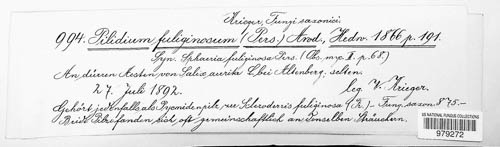 Krieger, Fungi saxonici
994. Pilidium fuliginosum (Pers.) Awd., Hedw. 1866, p. 191.
Syn. Sphaeria fuliginosa Pers. (Obs. myc. II. p. 68.)
An dürren Aesten von Salix aurita L. bei Altenberg, selten.
27. Juli 1892. leg. W. Krieger.
Gehört jedenfalls als Pycnidenpilz zu Scleroderris fuliginosa (Fr.) – Fung. saxon. 875. –
Beide Pilze fanden sich oft gemeinschaftlich an denselben Sträuchern.
US NATIONAL FUNGUS COLLECTIONS
979272